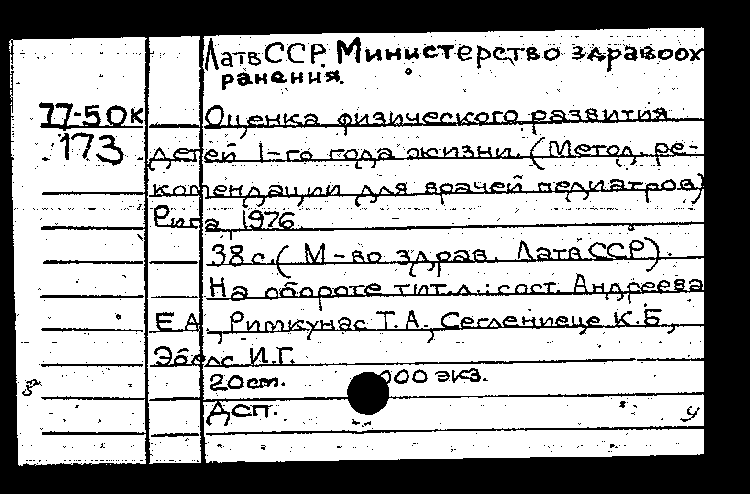 ЛатвССР. Министерство здравоох
ранения.
77-5 ОК Оценка физического развития
173 детей 1-го года жизни. (Метод. ре-
комендации для врачей педиатров)
Рига, 1976.
38 с. (М-во здрав. ЛатвССР).
На обороте тит.л.: сост. Андреева
Е.А., Римкунас Т.А., Сеглениеце К.Б.,
Эбелс И.Г.
20 см. 000 экз.
Дсп.